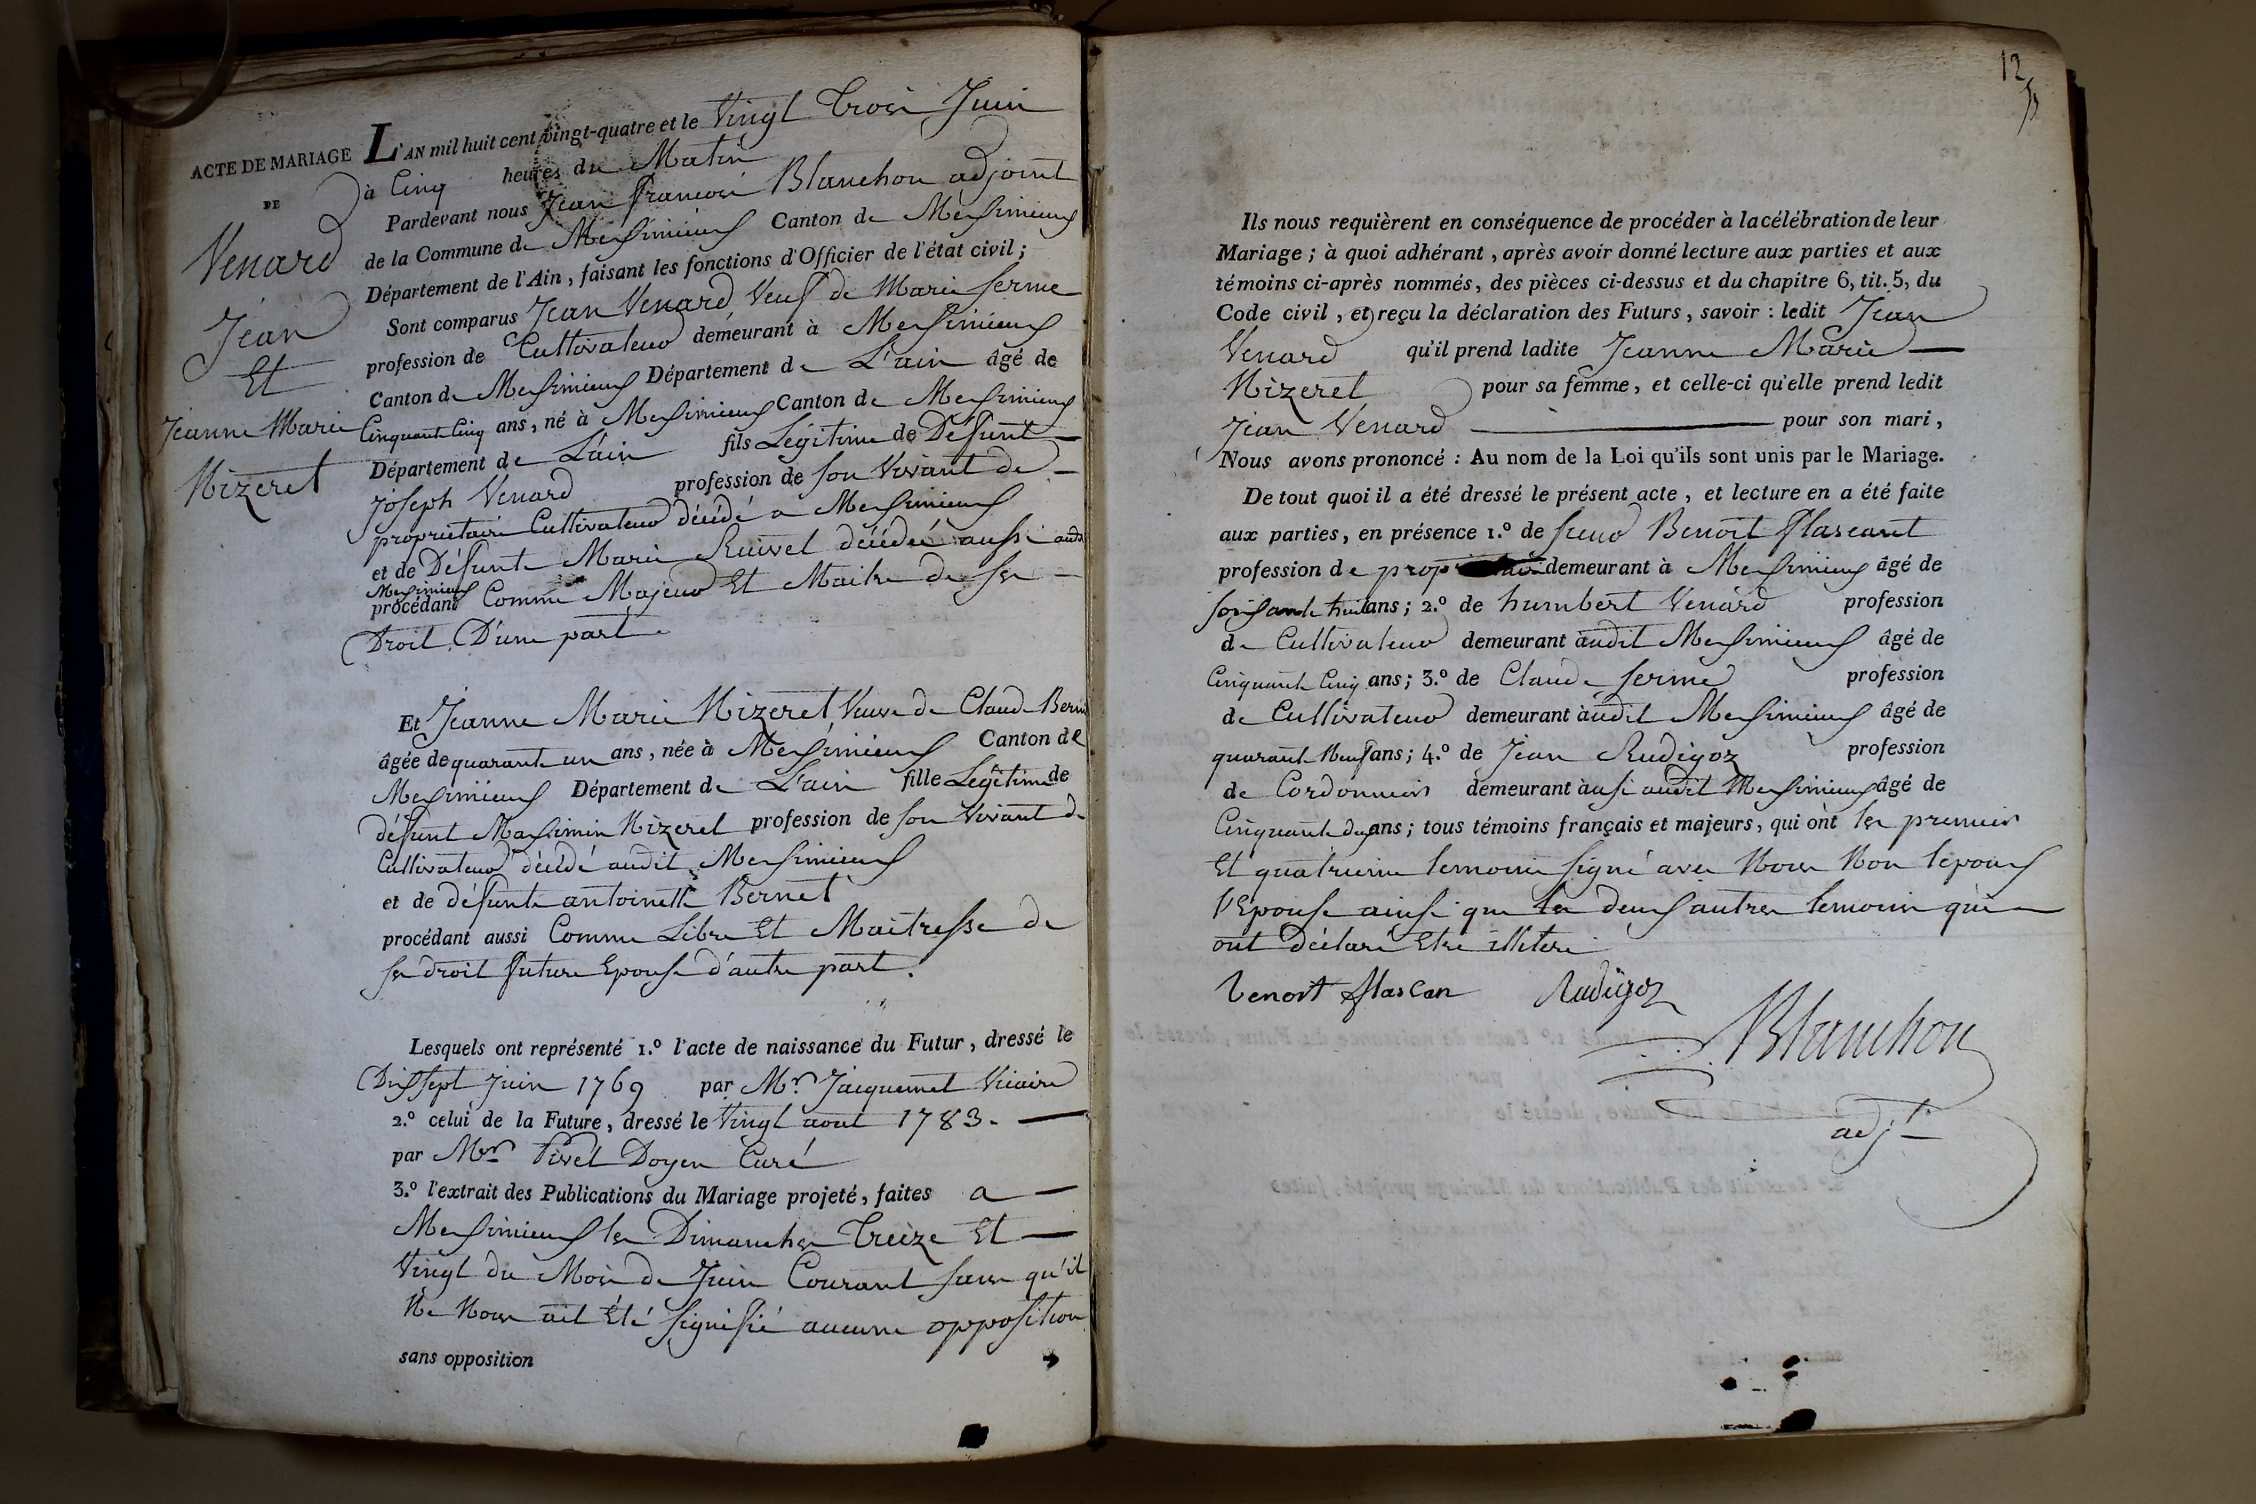 ACTE DE MARIAGE
DE
Venard
Jean
Et
Jeanne Marie
Nizeret
L'AN mil huit cent vingt-quatre et le Vingt Trois Juin
à Cinq heures du Matin
Pardevant nous Jean françois Blanchon adjoint
de la Commune de Messimieux Canton de Messimieux
Département de l'Ain, faisant les fonctions d'Officier de l'état civil;
Sont comparus Jean Venard Veuf de Marie ferme
profession de Cultivateur demeurant à Messimieux
Canton de Messimieux Département de L'ain âgé de
Cinquante Cinq ans, né à Messimieux Canton de Messimieux
Département de L'ain fils Légitime de Défunt
Joseph Venard profession de son Vivant de
propriétaire Cultivateur décédé a Messimieux
et de Défunte Marie décédée aussi audt
Messimieux
procédant Comme Majeur Et Maitre de ses
Droit D'une part.
Et Jeanne Marie Nizeret Veuve de Claude
âgée de quarante un ans, née à Messimieux Canton de
Messimieux Département de L'ain fille Légitime de
défunt Maximin Nizeret profession de son Vivant de
Cultivateur décédé audit Messimieux
et de défunte antoinette Bernet
procédant aussi Comme Libre Et Maitresse de
ses droit future Epouse d'autre part.
Lesquels ont représenté 1.º l'acte de naissance du Futur, dressé le
Dixsept Juin 1769 par Mr. Jacquemet Vicaire
2.º celui de la Future, dressé le Vingt aout 1783.
par Mr. Doyen Curé
3.º l'extrait des Publications du Mariage projeté, faites a
Messimieux les Dimanches Treize Et
Vingt du Mois de Juin Courant sans qu'il
Ne Nous ait Eté signifié aucune opposition
sans opposition
12
Ils nous requièrent en conséquence de procéder à la célébration de leur
Mariage; à quoi adhérant, après avoir donné lecture aux parties et aux
témoins ci-après nommés, des pièces ci-dessus et du chapitre 6, tit. 5, du
Code civil, et reçu la déclaration des Futurs, savoir: ledit Jean
Venard qu'il prend ladite Jeanne Marie
Nizeret pour sa femme, et celle-ci qu'elle prend ledit
Jean Venard pour son mari,
Nous avons prononcé: Au nom de la Loi qu'ils sont unis par le Mariage.
De tout quoi il a été dressé le présent acte, et lecture en a été faite
aux parties, en présence 1.º de sieur Benoît flascant
profession de demeurant à Messimieux âgé de
soixante huit ans; 2.º de humbert Venard profession
de Cultivateur demeurant audit Messimieux âgé de
Cinquante Cinq ans; 3.º de Claude ferme profession
de Cultivateur demeurant audit Messimieux âgé de
quarante Neuf ans; 4.º de Jean Rudigoz profession
de Cordonnier demeurant ausi audit Messimieux âgé de
Cinquante deux ans; tous témoins français et majeurs, qui ont les premier
Et quatrieme temoins signé avec Nous Non l'epoux
l'Epouse ainsi que les deux autres temoins qui
ont déclaré Etre illetere
benoit flascan Rudigoz
Blanchon
adjt